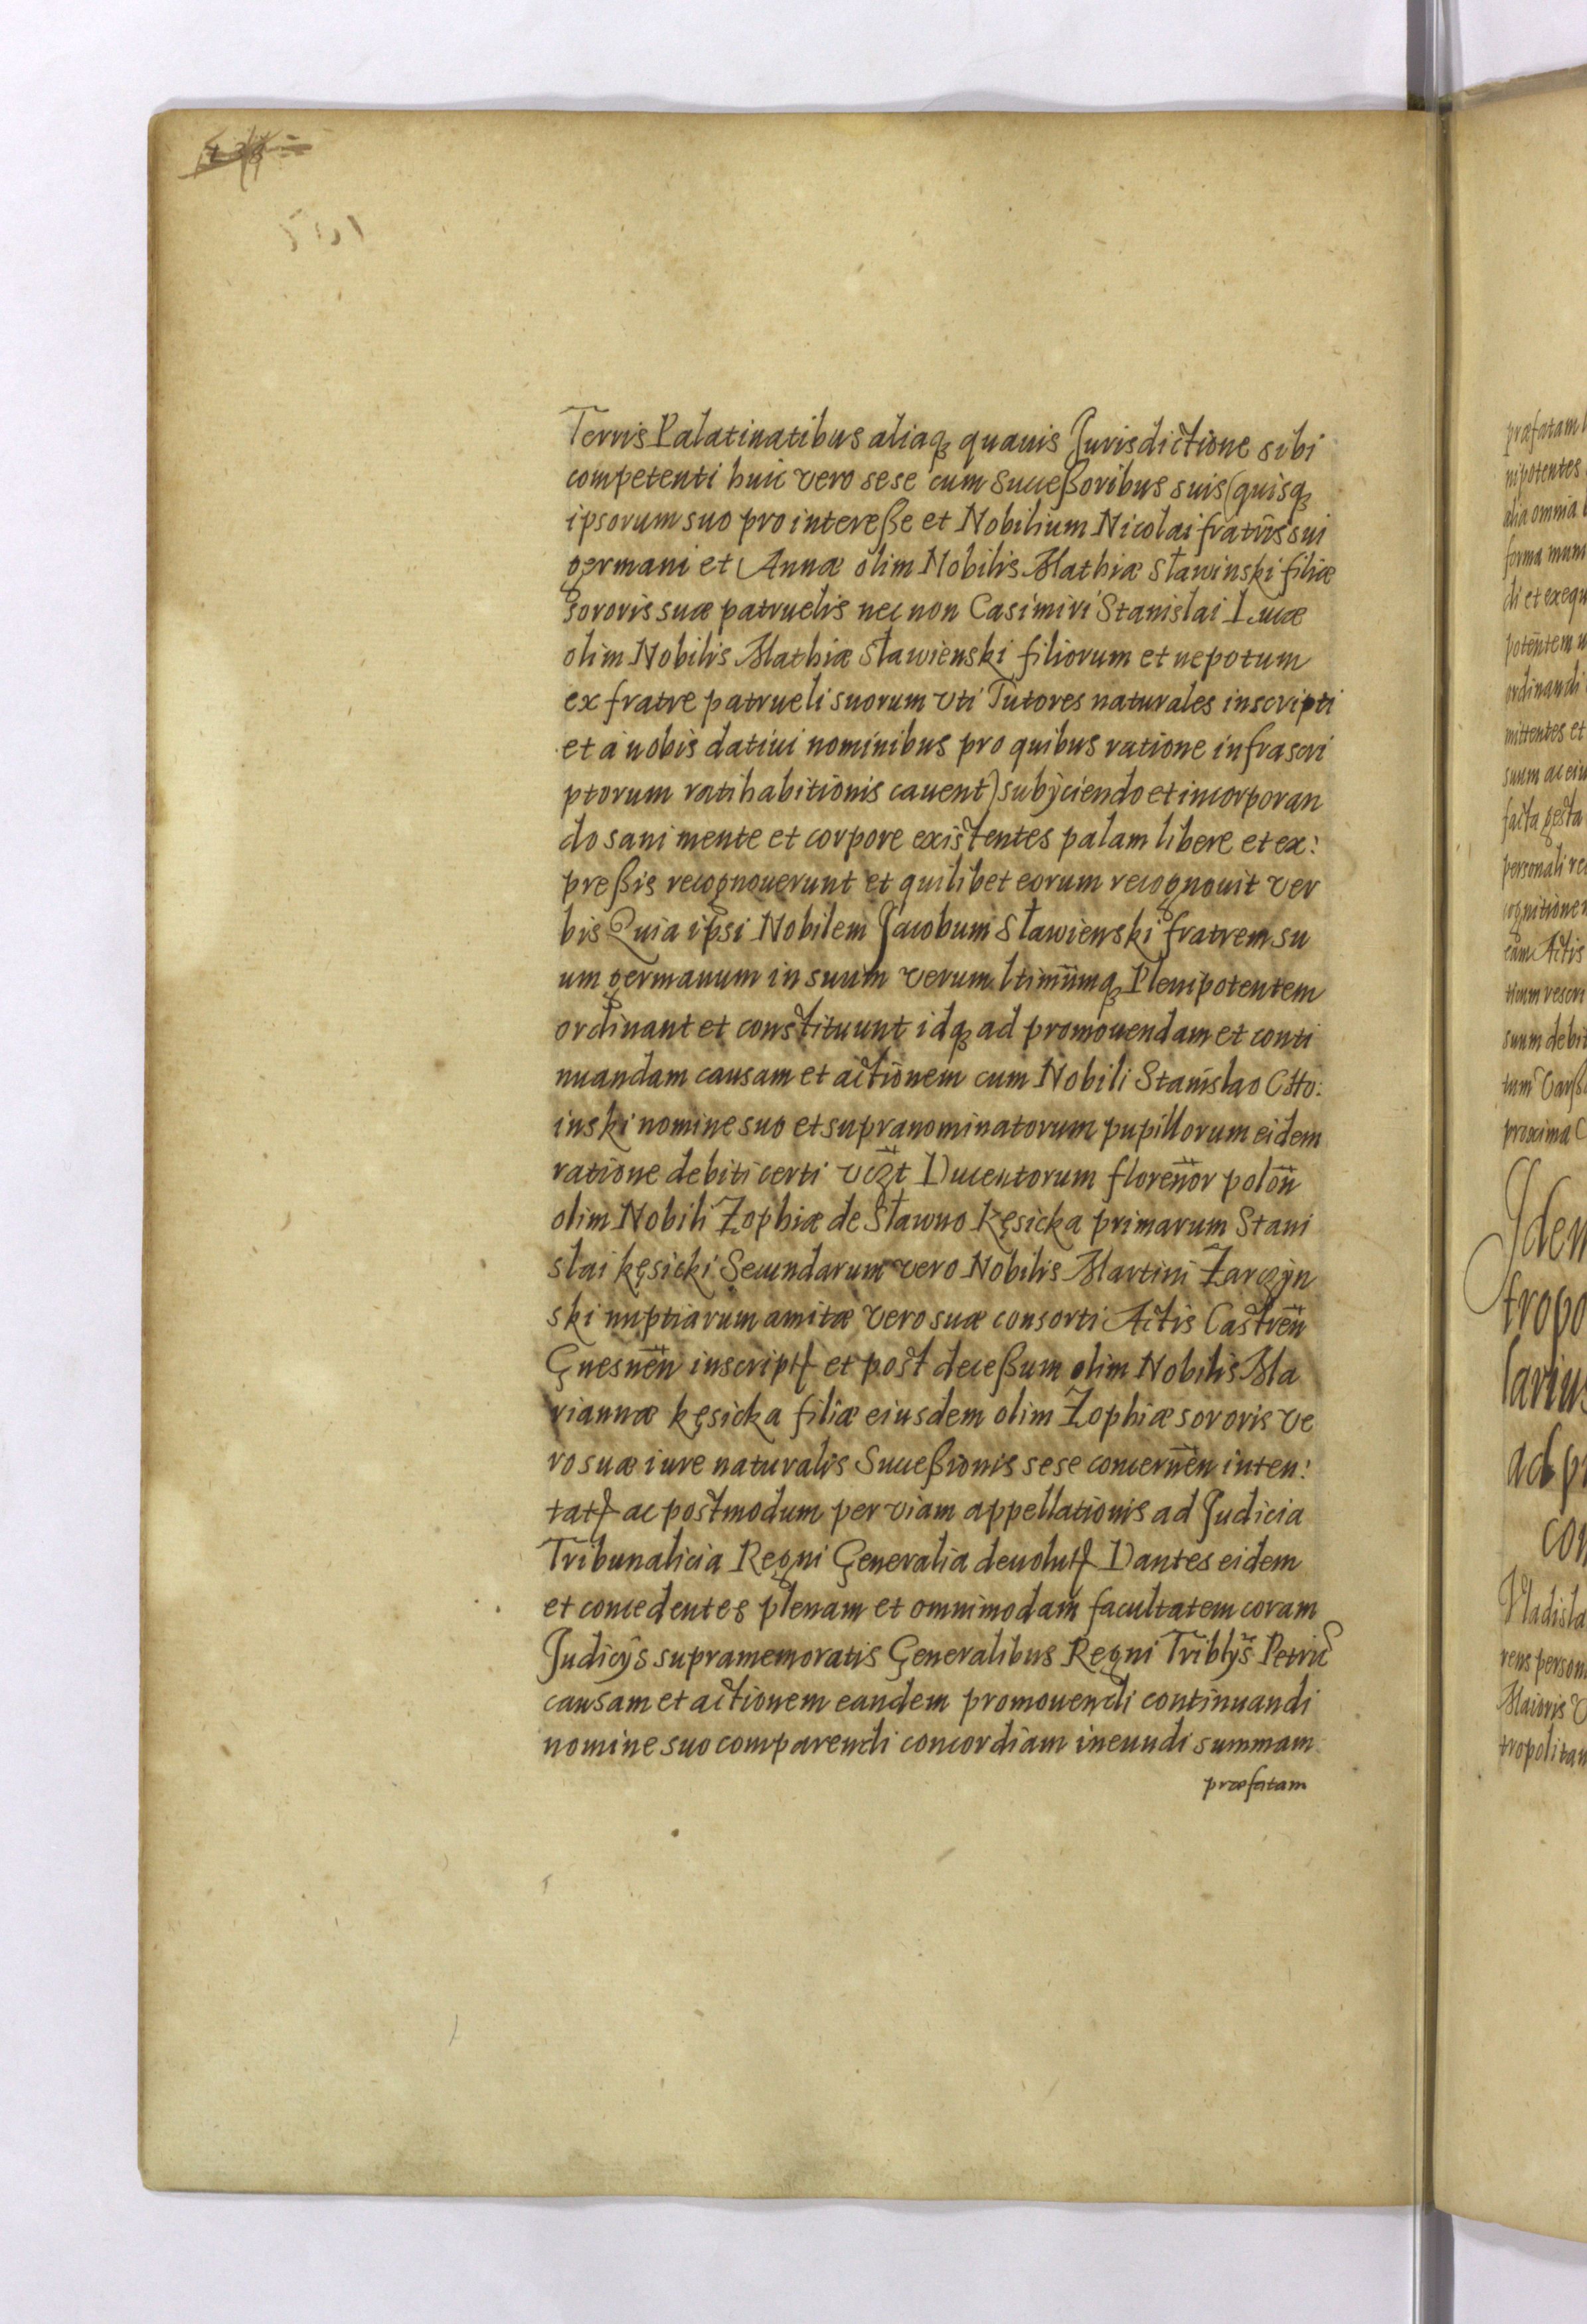 Terris Palatinatibus aliaqꝫ quauis Jurisdictione sibi
competenti huic vero sese cum Succeßoribus suis (quisqꝫ
ipsorum suo pro intereße et Nobilium Nicolai fratris sui
germani et Annæ olim Nobilis Mathiæ Sławinski filiæ
sororis suæ patruelis nec non Casimiri Stanislai Lucæ
olim Nobilis Mathiæ Sławienski filiorum et nepotum
ex fratre patrueli suorum vti Tutores naturales inscripti
et à nobis datiui nominibus pro quibus ratione infrascri
ptorum ratihabitionis cauent) subÿciendo et incorporan
do sani mente et corpore existentes palam libere et ex:
preßis recognouerunt et quilibet eorum recognouit ver
bis Quia ipsi Nobilem Jacobum Sławienski fratrem su
um germanum in suum verum ltimũmqꝫ Plenipotentem
ordinant et constituunt idqꝫ ad promouendam et conti
nuandam causam et actionem cum Nobili Stanislao
inski nomine suo et supranominatorum pupillorum eidem
ratione debiti certi vcꝫt Ducentorum floreñor poloñ
olim Nobili Zophiæ de Sławno Kęsicka primarum Stani
slai kęsicki Secundarum vero Nobilis Martini Zarczÿn
ski nuptiarum amitæ vero suæ consorti Actis Castreñ
Gnesneñ inscriptꝭ et post deceßum olim Nobilis Ma
riannæ kęsicka filiæ eiusdem olim Zophiæ sororis ve
ro suæ iure naturalis Succeßionis sese concerneñ inten:
tatꝭ ac postmodum per viam appellationis ad Judicia
Tribunalicia Regni Generalia deuolutꝭ Dantes eidem
et concedentes plenam et omnimodam facultatem coram
Judicÿs supramemoratis Generalibus Regni Triblÿs Petric̃
causam et actionem eandem promouendi continuandi
nomine suo comparendi concordiam ineundi summam
præfatam